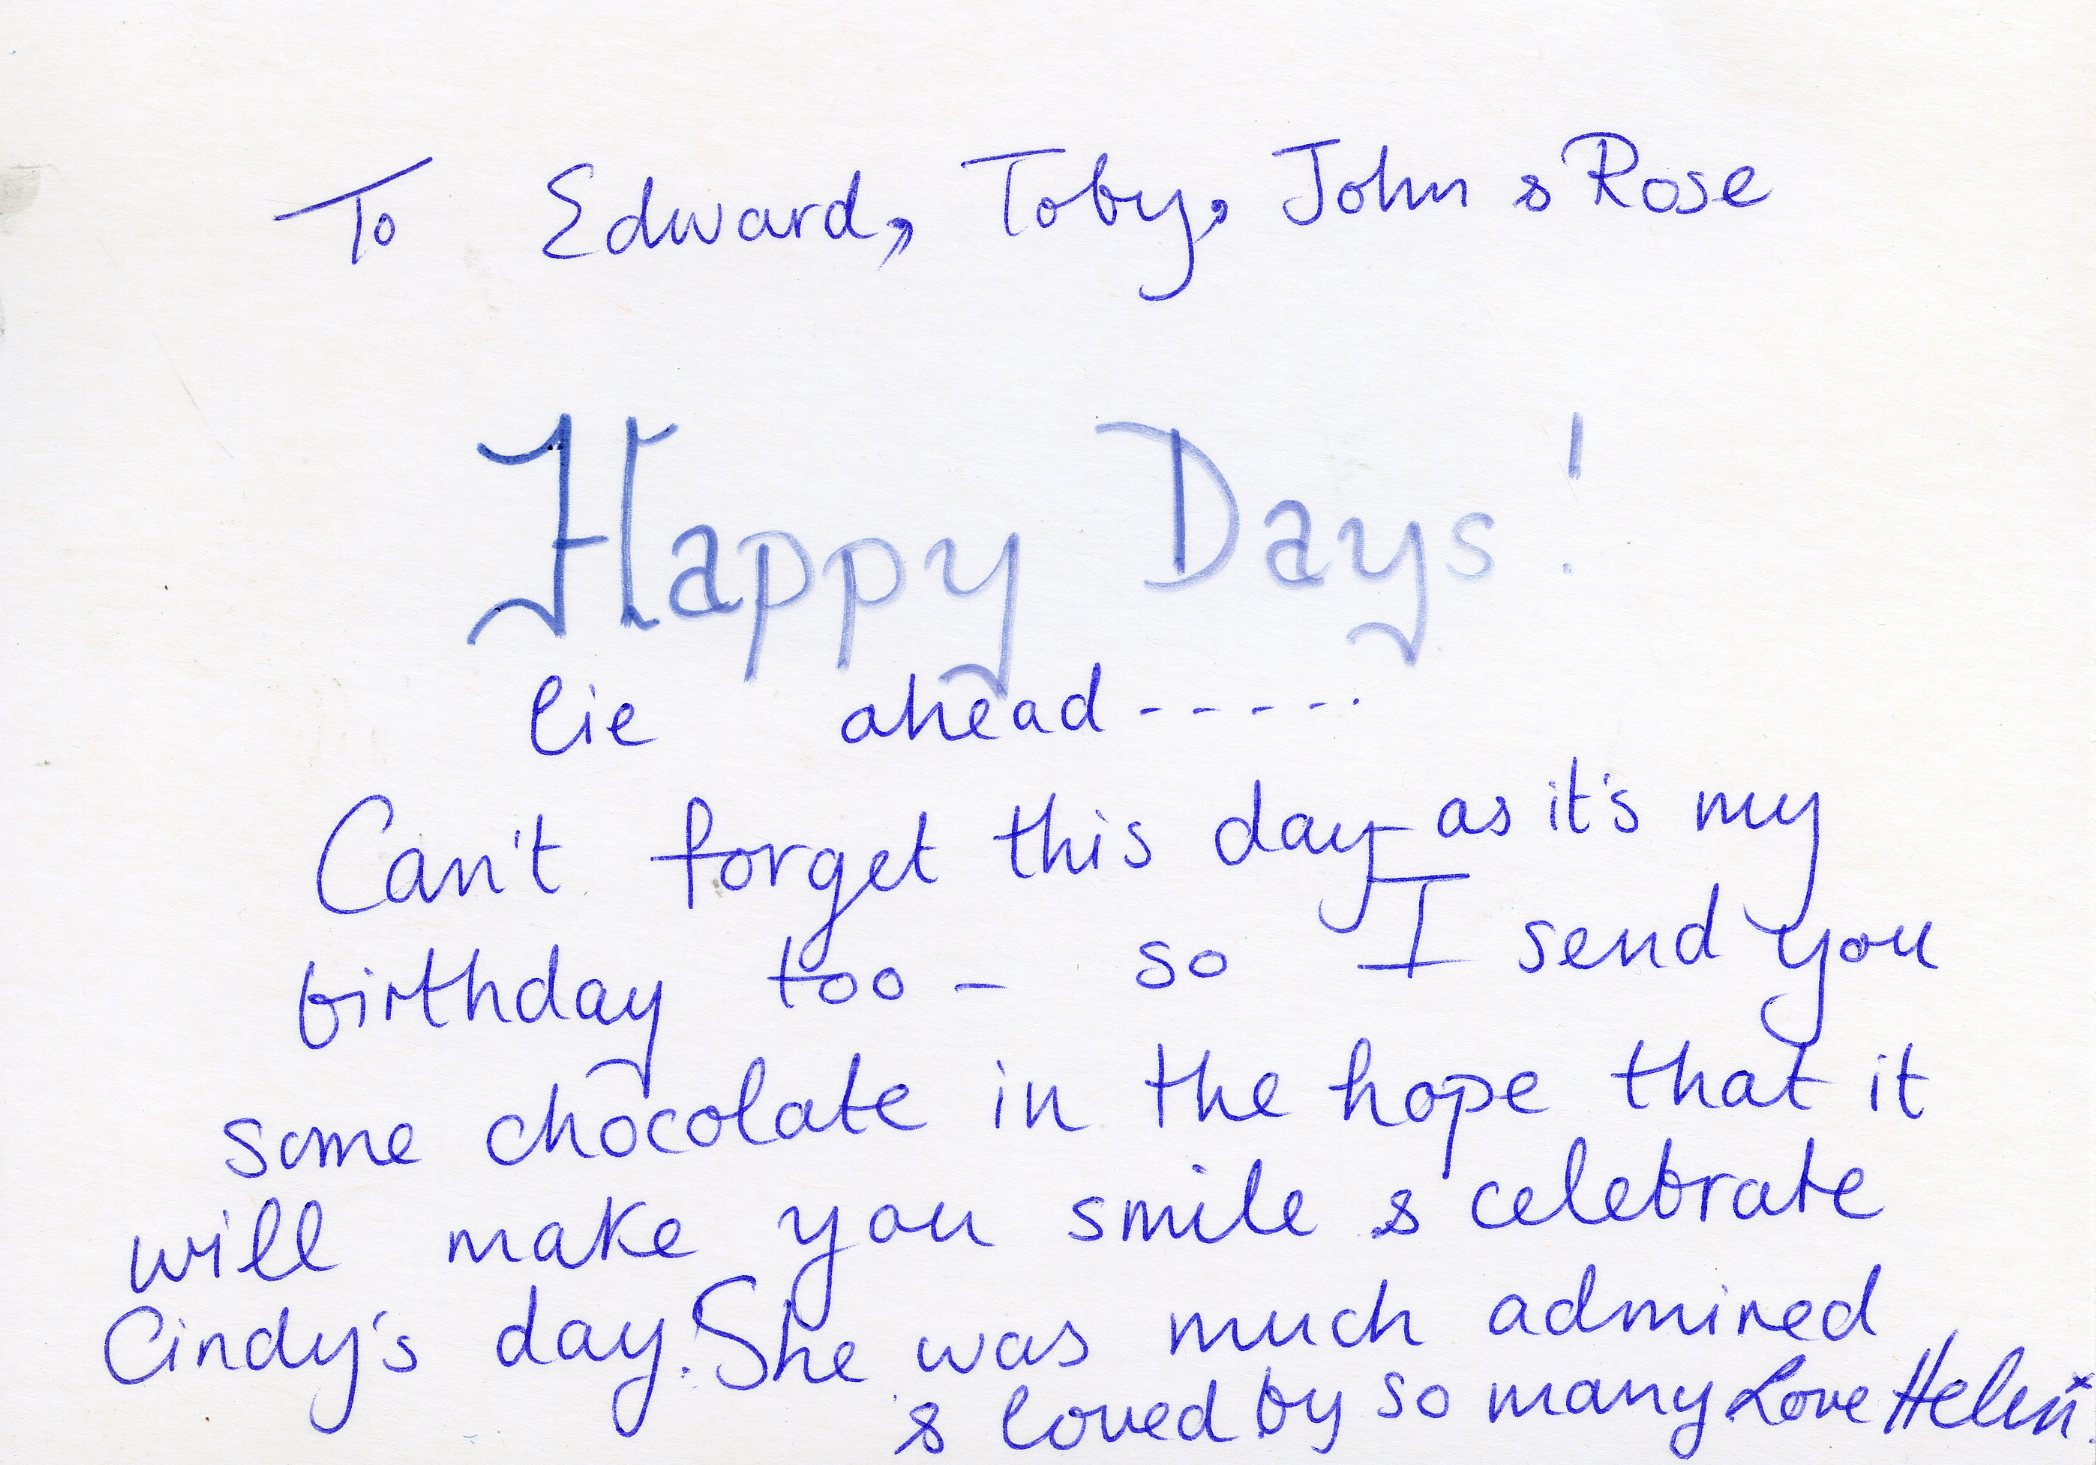 To Edward, Toby, John & Rose
Happy Days!
lie ahead-----
Can't forget this day - as it's my
birthday too - so I send you
some chocolate in the hope that it
will make you smile & celebrate
Cindy's day. She was much admired
& loved by so many Love Helen x